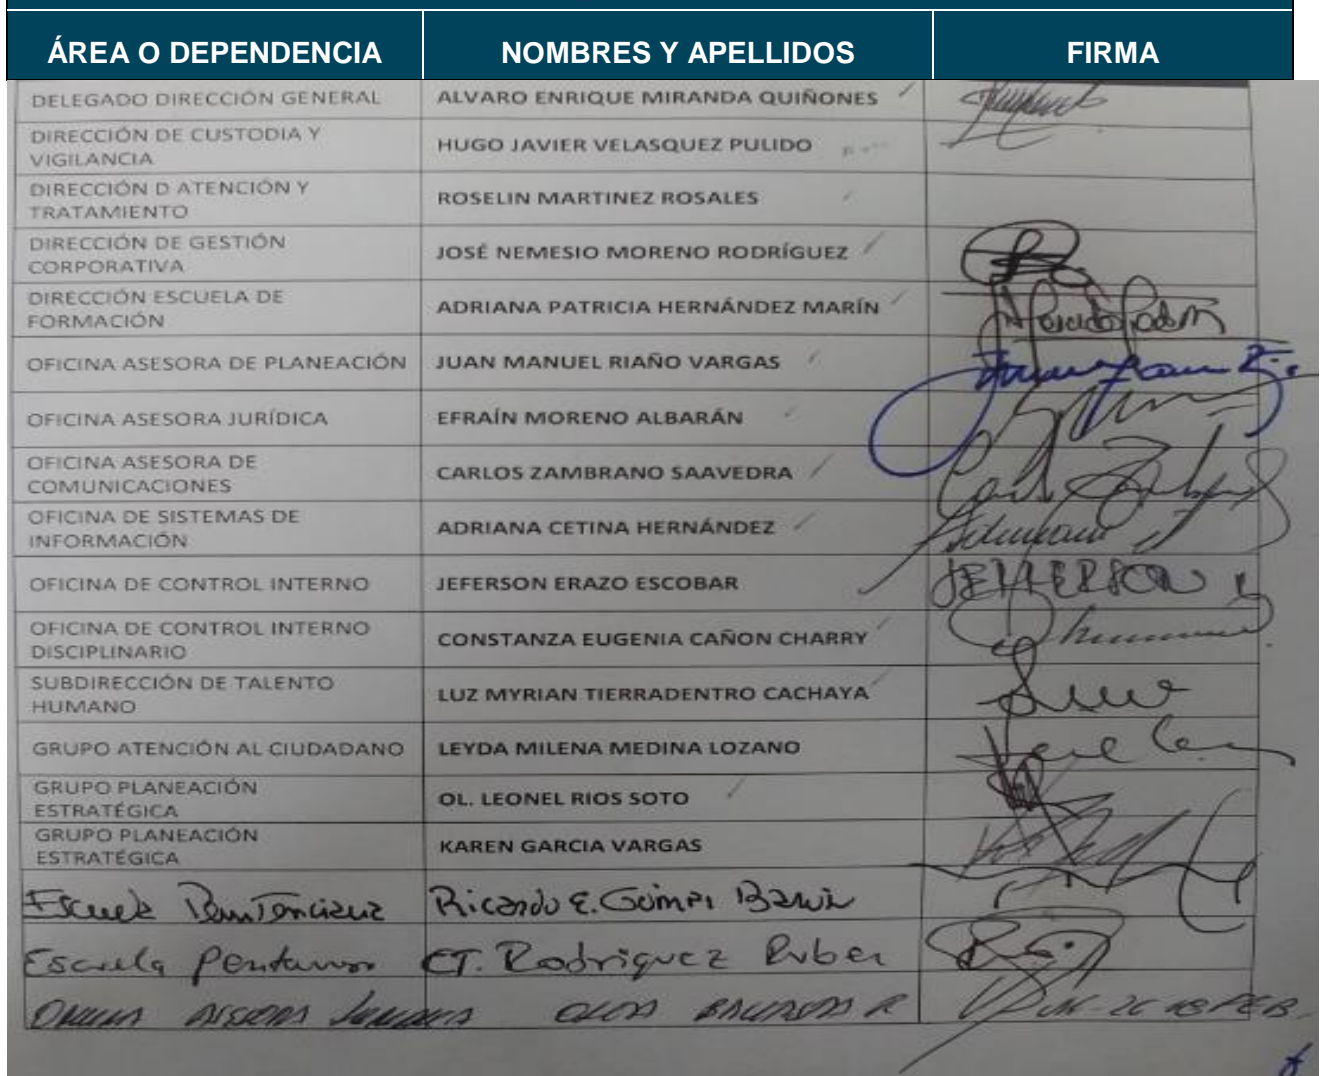 ÁREA O DEPENDENCIA NOMBRES Y APELLIDOS FIRMA
DELEGADO DIRECCIÓN GENERAL ALVARO ENRIQUE MIRANDA QUIÑONES
DIRECCIÓN DE CUSTODIA Y
VIGILANCIA
HUGO JAVIER VELASQUEZ PULIDO
DIRECCIÓN D ATENCIÓN Y
TRATAMIENTO
ROSELIN MARTINEZ ROSALES
DIRECCIÓN DE GESTIÓN
CORPORATIVA
JOSÉ NEMESIO MORENO RODRÍGUEZ
DIRECCIÓN ESCUELA DE
FORMACIÓN
ADRIANA PATRICIA HERNÁNDEZ MARÍN
OFICINA ASESORA DE PLANEACIÓN JUAN MANUEL RIAÑO VARGAS
OFICINA ASESORA JURÍDICA EFRAÍN MORENO ALBARÁN
OFICINA ASESORA DE
COMUNICACIONES
CARLOS ZAMBRANO SAAVEDRA
OFICINA DE SISTEMAS DE
INFORMACIÓN
ADRIANA CETINA HERNÁNDEZ
OFICINA DE CONTROL INTERNO JEFERSON ERAZO ESCOBAR JEFFERSON
OFICINA DE CONTROL INTERNO
DISCIPLINARIO
CONSTANZA EUGENIA CAÑON CHARRY
SUBDIRECCIÓN DE TALENTO
HUMANO
LUZ MYRIAN TIERRADENTRO CACHAYA
GRUPO ATENCIÓN AL CIUDADANO LEYDA MILENA MEDINA LOZANO
GRUPO PLANEACIÓN
ESTRATÉGICA
OL. LEONEL RIOS SOTO
GRUPO PLANEACIÓN
ESTRATÉGICA
KAREN GARCIA VARGAS
Escuela Ricardo E.
Escuela CT. Rodriguez Ruber